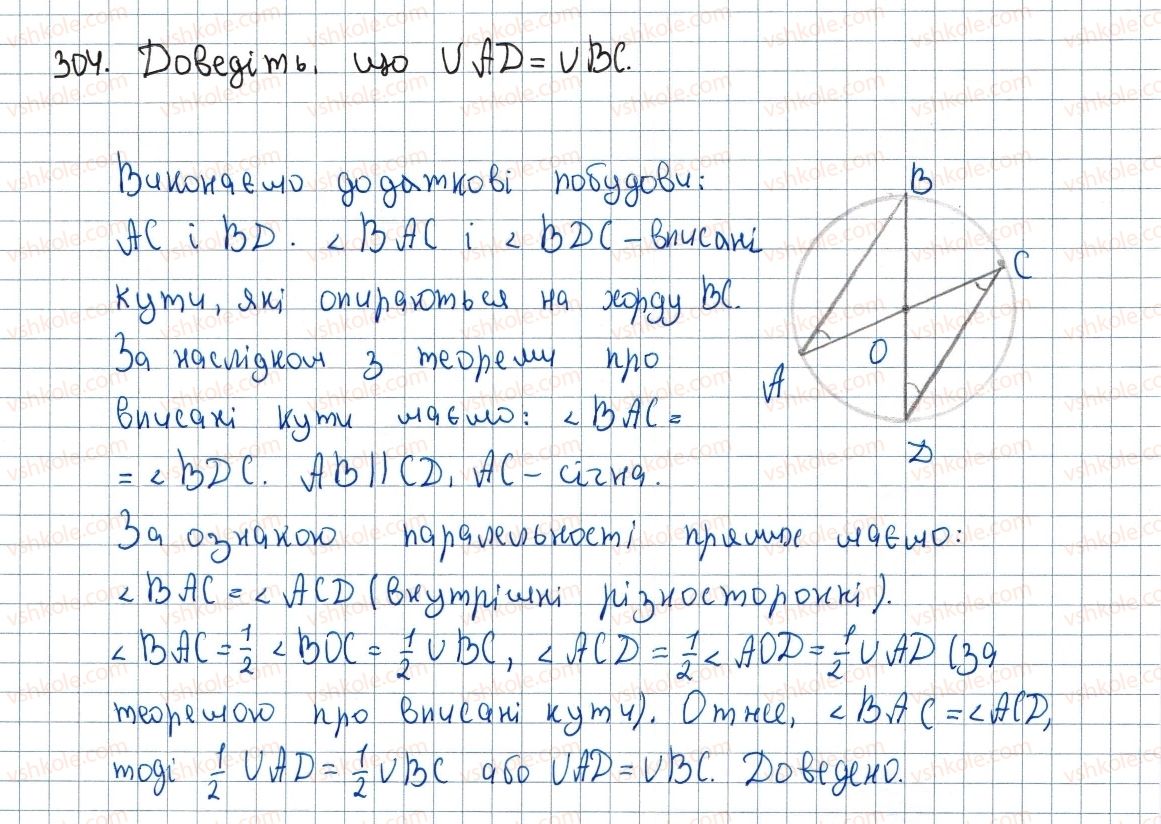 304. Доведіть, що ∪AD = ∪BC.
Виконаємо додаткові побудови:
AC і BD. ∠BAC і ∠BDC – вписані
кути, які опираються на хорду BC.
За наслідком з теореми про
вписані кути маємо: ∠BAC =
= ∠BDC. AB||CD, AC – січна.
За ознакою паралельності прямих маємо:
∠BAC = ∠ACD (внутрішні різносторонні).
∠BAC = 1/2 ∠BOC = 1/2 ∪BC, ∠ACD = 1/2 ∠AOD = 1/2 ∪AD (за
теоремою про вписані кути). Отже, ∠BAC = ∠ACD,
тоді 1/2 ∪AD = 1/2 ∪BC або ∪AD = ∪BC. Доведено.
B
C
O
A
D
vshkole.com